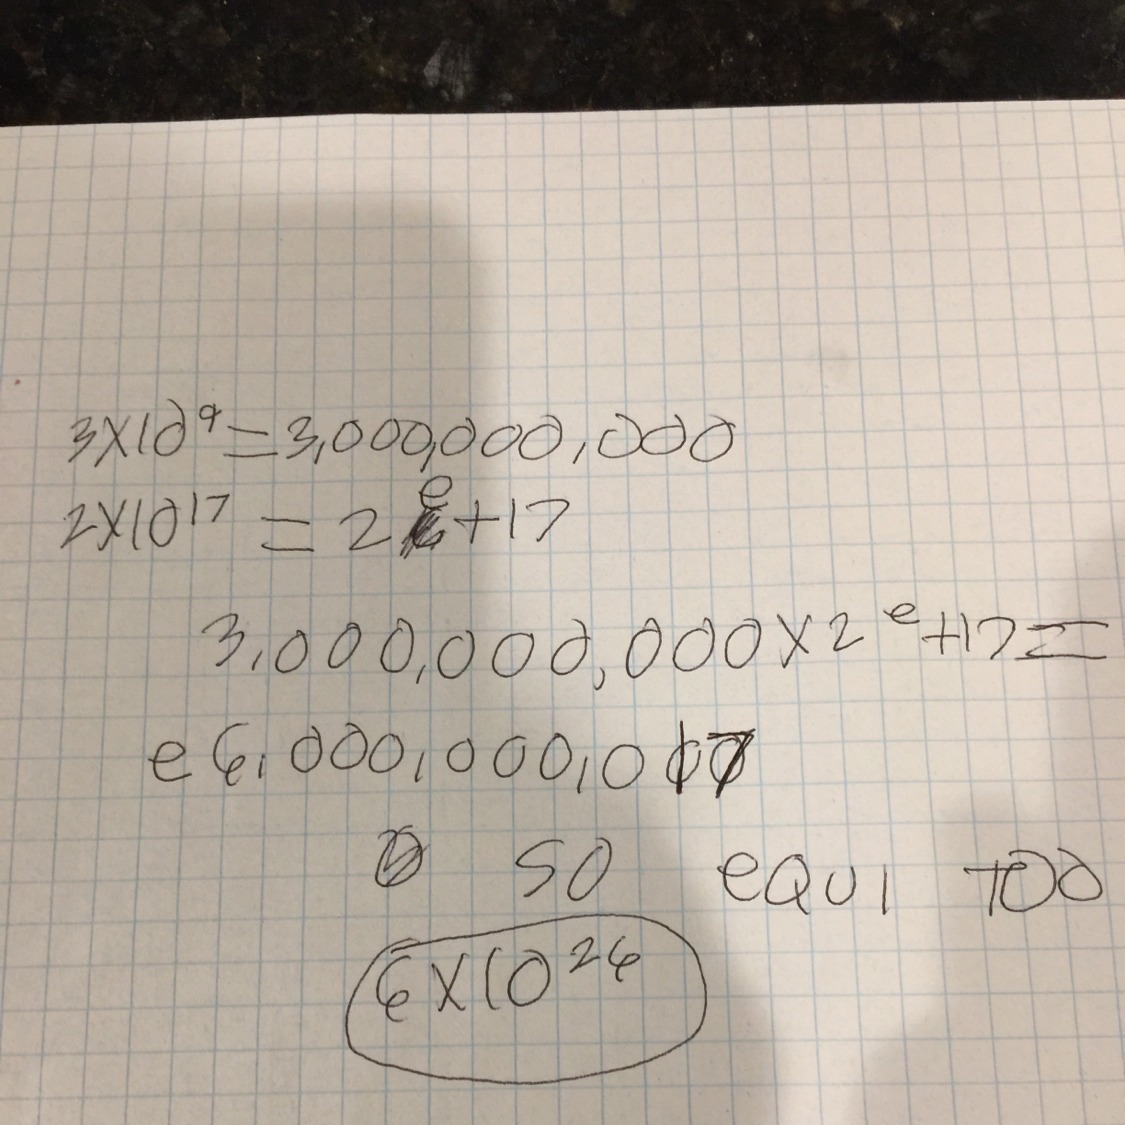 3x10⁹=3,000,000,000
2x10¹⁷ = 2e+17
3,000,000,000x2e+17=
e6,000,000,017
so equi too
6x10²⁶